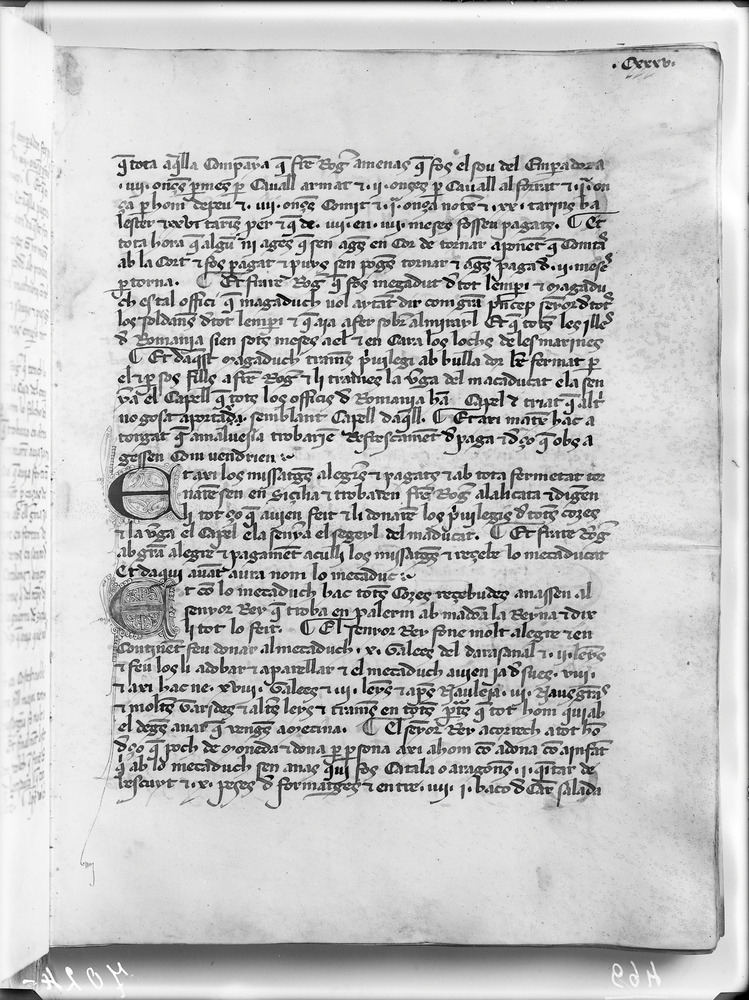 · Cxxxv·
q̄ tota aq̄lla Compāya q̄ frẽ Rog̃ amenas q̄ fos el sou del Emperador a
·iiij· onçes ꝑ mes ꝑ Cauall armat ⁊ ·ij· onçes ꝑ Cauall alforrat ⁊ ·j̄· on
ça ꝑ hom̃ de peu ⁊ ·iiij· onçes Comit ⁊ ·j̄· onça notxẽ ⁊ ·xx· tarins ba
lester ⁊ xxvi tarĩs per ⁊ q̄ de ·iiij· en ·iiij· meses fossen pagats· ¶ Et
tota hora q̄ algũ nj ages q̄ sen ag̃s en Cor de tornar a ponẽt q̄ Comtã
ab la Cort ⁊ fos pagat ⁊ puys sen pog̃s tornar ⁊ ag̃s paga d̃ ·ij· meses
ꝑ torna· ¶ Et frare Rog̃ q̄ fos megaduch d̃ tot lemꝑi ⁊ magadu
ch es tal offici q̄ magaduch vol aytãt dir com gr̃a pñcep senyor d̃ tots
los soldaṽs d̃ tot lemꝑi ⁊ q̄ aja afer sobr̃ almirayl Et q̄ totes les illes
d̃ Romania sien sots meses a el ⁊ en Cara los lochs de les marines
¶ Et daq̃st magaduch tramẽs p̃uilegi ab bulla dor bẽ fermat ꝑ
el ⁊ ꝑ sos fills a frẽ Rog̃ ⁊ li tramẽs la v̂ga del macaducat e la sen
yera el Capell q̄ tots los officis d̃ Romania hã Capel d̃ triat q̄ alt̃
no gosa aportar semblant Capell daq̃ll· ¶ Et axi mateix hac a
torgat q̄ a maluesia trobarien Refrescamẽt d̃ paga ⁊ d̃ ço q̄ obs a
gessen Com vendrien
Et axi los missatg̃s alegres ⁊ pagats ⁊ ab tota fermetat tor
narẽ sen en Siçilia ⁊ trobaren frẽ Rog̃ a la licata ⁊ digen
li tot ço q̄ auien feit ⁊ li donarẽ los p̃uilegis d̃ totes coses
⁊ la v̂ga el Capel e la senyã el segeyl del maducat· ¶ Et frare Rog̃
ab grã alegre ⁊ pagamẽt aculli los missatg̃s ⁊ reçebe lo mecaducat
Et daqui auãt aura nom lo mecaduc
Et cõ lo mecaduch hac totes Coses reçebudes anassen al
senyor Rey q̄ troba en palerm ab madõa la Reyna ⁊ dix
li tot lo feit· ¶ El senyor Rey fone molt alegre ⁊ en
Continẽt feu donar al mecaduch ·x· Galees del darasanal ⁊ ·ij· leẽs
⁊ feu los li adobar ⁊ aparellar ⁊ el mecaduch auien ja d̃ sues ·viij·
⁊ axi hac ne ·xviij· Galees ⁊ ·iij· leẽs ⁊ ap̃s Nauleja ·iij· Naus gr̃as
⁊ moltes Tarides ⁊ altẽs leys ⁊ tramẽs en totes ꝑts q̄ tot hom qui ab
el deg̃s anar q̄ veng̃s a meçina· ¶ El senyor Rey acorrech a tot hõ
d̃ ço q̄ poch de moneda ⁊ dona ꝑ ꝑsona axi a hom cõ a dona cõ a infãt
q̄ ab lo mecaduch sen anas qui fos Catala o aragones ·j· q̃tar de
bescuyt ⁊ ·x· peses d̃ formatges ⁊ entre ·iiij· ·j· baco d̃ Carn salada
7024-
469